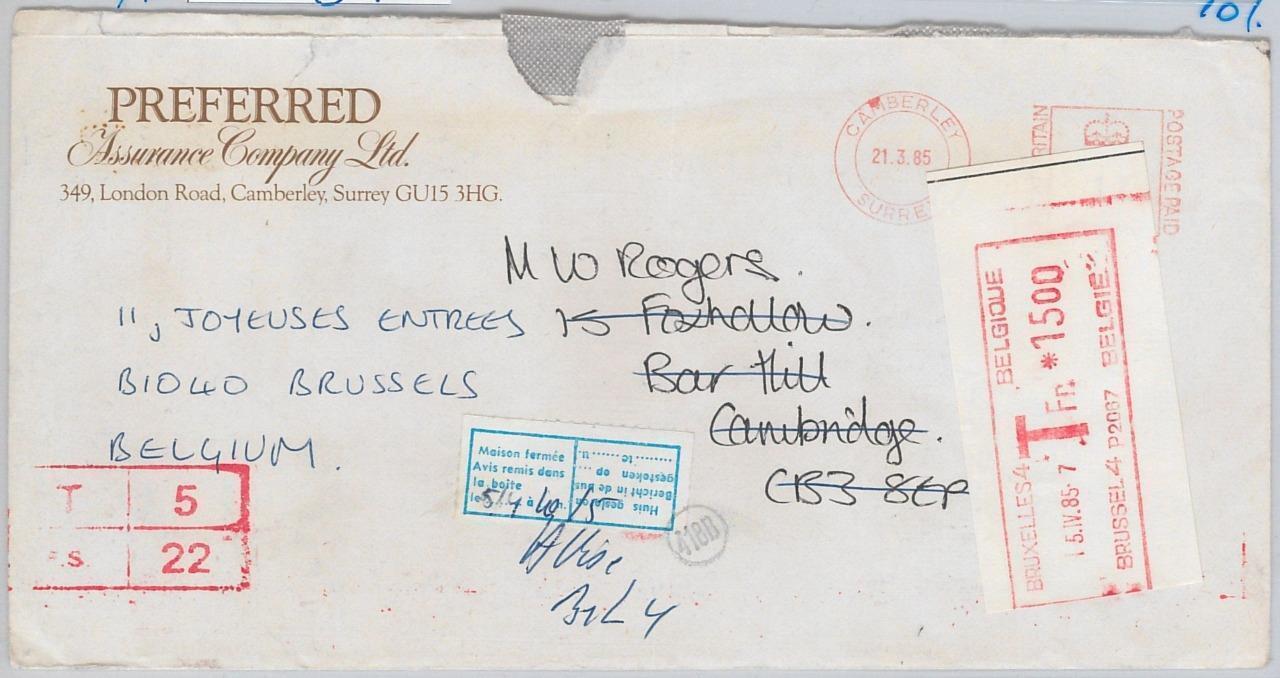 10%
PREFERRED
Assurance Company Ltd.
349, London Road, Camberley, Surrey GU15 3HG.
CAMBERLEY
21.3.85
SURREY
POSTAGE PAID
M W Rogers.
15 Foxhollow.
Bar Hill
Cambridge.
CB3 8EP
11, JOYEUSES ENTREES
B1040 BRUSSELS
BELGIUM.
Maison fermée
Avis remis dans
la boîte
le à
Huis gesloten
Bericht in de bus
gestoken op
te u.
418B
BRL 4
T 5
22
BELGIQUE BELGIË
T Fr. *1500
BRUXELLES 4 15.IV.85-7 BRUSSEL 4 P2067